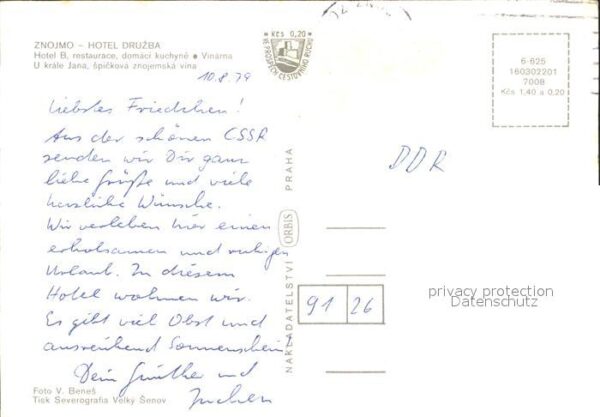 ZNOJMO – HOTEL DRUŽBA
Hotel B, restaurace, domácí kuchyně ● Vinárna
U krále Jana, špičková znojemská vína
10.8.79
Kčs 0,20
VE PROSPĚCH CESTOVNÍHO RUCHU
6-625
160302201
7008
Kčs 1,40 a 0,20
Liebstes Friedchen!
Aus der schönen CSSR
senden wir Dir ganz
liebe Grüße und viele
herzliche Wünsche.
Wir verleben hier einen
erholsamen und ruhigen
Urlaub. In diesem
Hotel wohnen wir.
Es gibt viel Obst und
ausreichend Sonnenschein!
Dein Günther und
DDR
NAKLADATELSTVÍ ORBIS PRAHA
91 26
privacy protection
Datenschutz
Foto V. Beneš
Tisk Severografia Velký Šenov